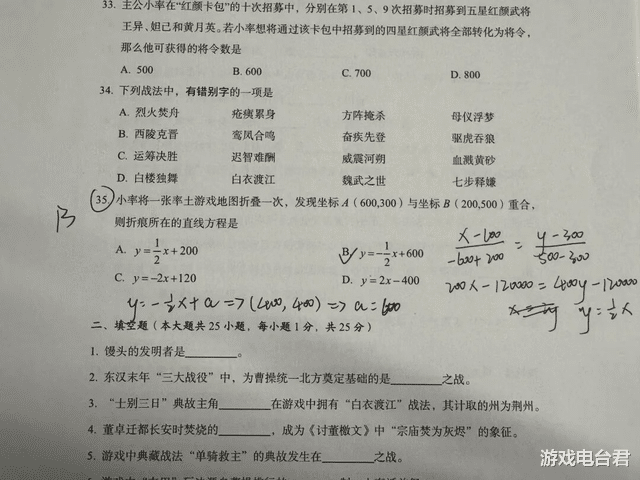 33. 主公小率在“红颜卡包”的十次招募中，分别在第 1、5、9 次招募时招募到五星红颜武将
王异、妲己和黄月英。若小率想将通过该卡包中招募到的四星红颜武将全部转化为将令，
那么他可获得的将令数是
A. 500 B. 600 C. 700 D. 800
34. 下列战法中，有错别字的一项是
A. 烈火焚舟 疮痍累身 方阵掩杀 母仪浮梦
B. 西陵克晋 鸾凤合鸣 奋疾先登 驱虎吞狼
C. 运筹决胜 迟智难酬 威震河朔 血溅黄砂
D. 白楼独舞 白衣渡江 魏武之世 七步释嫌
35. 小率将一张率土游戏地图折叠一次，发现坐标 A（600,300）与坐标 B（200,500）重合，
B
则折痕所在的直线方程是
A. y=1/2x+200 B. y=-1/2x+600
C. y=-2x+120 D. y=2x-400
x-600/-600+200 = y-300/500-300
200x-120000=400y-120000
y=1/2x
y=-1/2x+a=>(400,400)=>a=600
二、填空题（本大题共 25 小题，每小题 1 分，共 25 分）
1. 馒头的发明者是______。
2. 东汉末年“三大战役”中，为曹操统一北方奠定基础的是______之战。
3. “士别三日”典故主角______在游戏中拥有“白衣渡江”战法，其计取的州为荆州。
4. 董卓迁都长安时焚烧的______，成为《讨董檄文》中“宗庙焚为灰烬”的象征。
5. 游戏中典藏战法“单骑救主”的典故发生在______之战。
游戏电台君